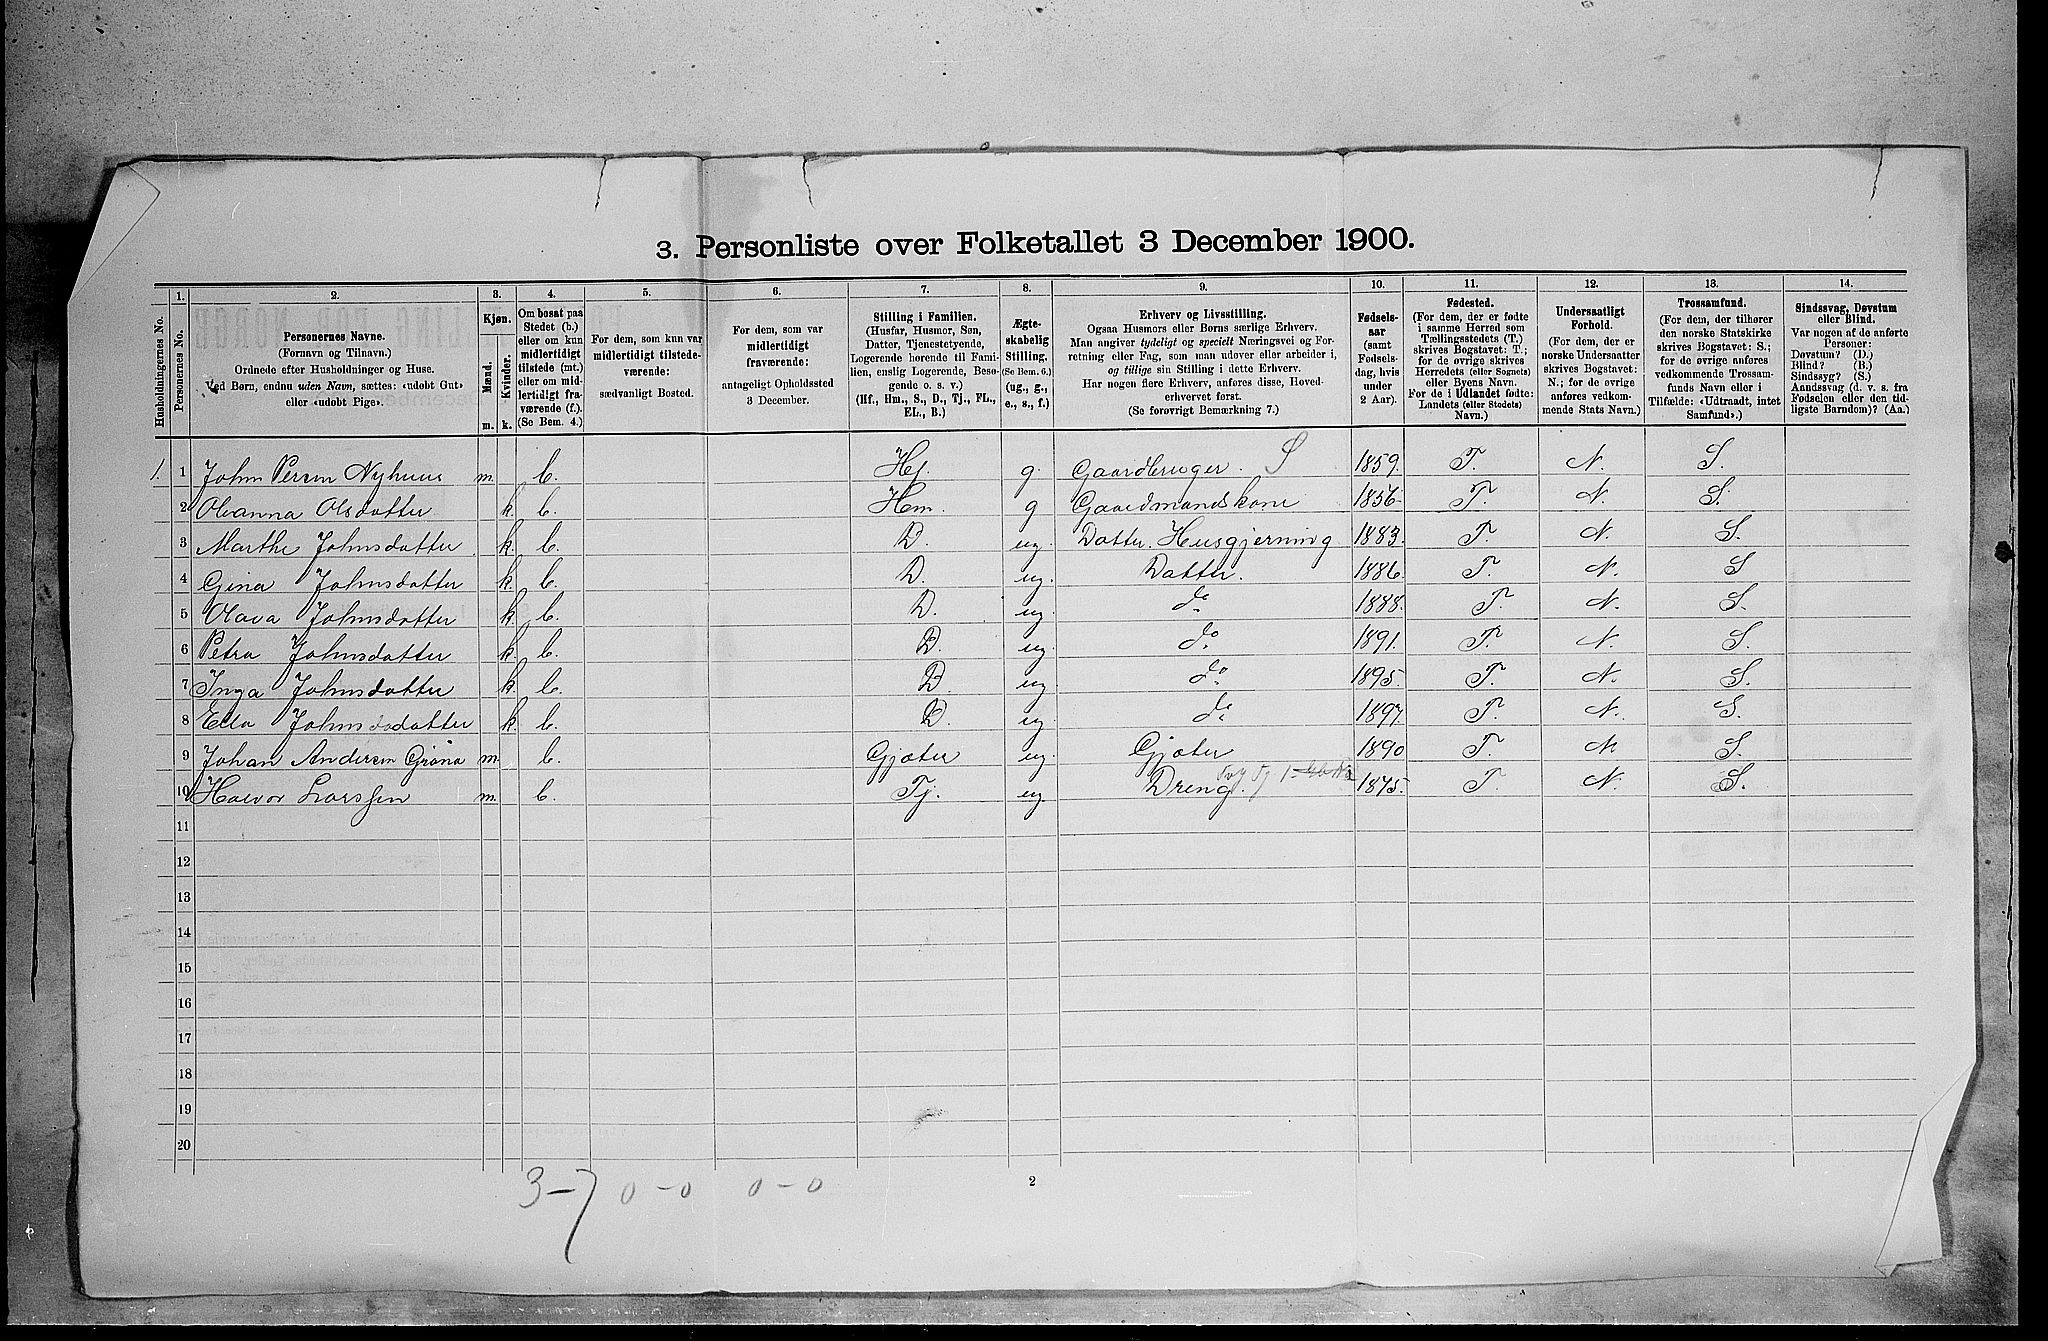 3. Personliste over Folketallet 3 December 1900.
1. 2. 3. 4. 5. 6. 7. 8. 9. 10. 11. 12. 13. 14.
Husholdningernes No.
Personernes No.
Personernes Navne.
(Fornavn og Tilnavn.)
Ordnede efter Husholdninger og Huse.
Ved Børn, endnu uden Navn, sættes: «udøbt Gut»
eller «udøbt Pige».
Kjøn.
Mænd.
Kvinder.
m. k.
Om bosat paa
Stedet (b.)
eller om kun
midlertidigt
tilstede (mt.)
eller om mid-
lertidigt fra-
værende (f.).
(Se Bem. 4.)
For dem, som kun var
midlertidigt tilstede-
værende:
sædvanligt Bosted.
For dem, som var
midlertidigt
fraværende:
antageligt Opholdssted
3 December.
Stilling i Familien.
(Husfar, Husmor, Søn,
Datter, Tjenestetyende,
Logerende hørende til Fami-
lien, enslig Logerende, Besø-
gende o. s. v.)
(Hf., Hm., S., D., Tj., FL.,
EL., B.)
Ægte-
skabelig
Stilling.
(Se Bem. 6.)
(ug., g.,
e., s., f.)
Erhverv og Livsstilling.
Ogsaa Husmors eller Børns særlige Erhverv.
Man angiver tydeligt og specielt Næringsvei og For-
retning eller Fag, som man udøver eller arbeider i,
og tillige sin Stilling i dette Erhverv.
Har nogen flere Erhverv, anføres disse, Hoved-
erhvervet først.
(Se forøvrigt Bemærkning 7.)
Fødsels-
aar
(samt
Fødsels-
dag, hvis
under
2 Aar).
Fødested.
(For dem, der er fødte
i samme Herred som
Tællingsstedets (T.)
skrives Bogstavet: T.;
for de øvrige skrives
Herredets (eller Sognets)
eller Byens Navn.
For de i Udlandet fødte:
Landets (eller Stedets)
Navn.)
Undersaatligt
Forhold.
(For dem, der er
norske Undersaatter
skrives Bogstavet:
N.; for de øvrige
anføres vedkom-
mende Stats Navn.)
Trossamfund.
(For dem, der tilhører
den norske Statskirke
skrives Bogstavet: S.;
for de øvrige anføres
vedkommende Trossam-
funds Navn eller i
Tilfælde: «Udtraadt, intet
Samfund».)
Sindssvag, Døvstum
eller Blind.
Var nogen af de anførte
Personer:
Døvstum? (D.)
Blind? (B.)
Sindssyg? (S.)
Aandssvag (d. v. s. fra
Fødselen eller den tid-
ligste Barndom)? (Aa.)
1. 1 John Persen Nyhuus m. b. Hf. g. Gaardbruger. S 1859. T. N. S.
2 Oleanna Olsdatter k. b. Hm. g Gaardmandskone 1856. T. N. S.
3 Marthe Johnsdatter k. b. D. ug. Datter. Husgjerning 1883. T. N. S.
4 Gina Johnsdatter k. b. D. ug. Datter. 1886. T. N. S
5 Olava Johnsdatter k. b. D. ug. do 1888. T. N. S.
6 Petra Johnsdatter k. b. D. ug. do 1891. T. N. S.
7 Inga Johnsdatter k. b. D. ug do 1895. T. N. S.
8 Ella Johnsdodatter k. b. D. ug do 1897. T. N. S.
9 Johan Andersen Grøna m. b. Gjæter ug. Gjæter 1890 T. N S.
10 Halvor Larssen m. b. Tj. ug. Dreng. 1875. T. N. S.
11
12
13
14
15
16
17
18
19
20
3-7 0-0 0-0
2